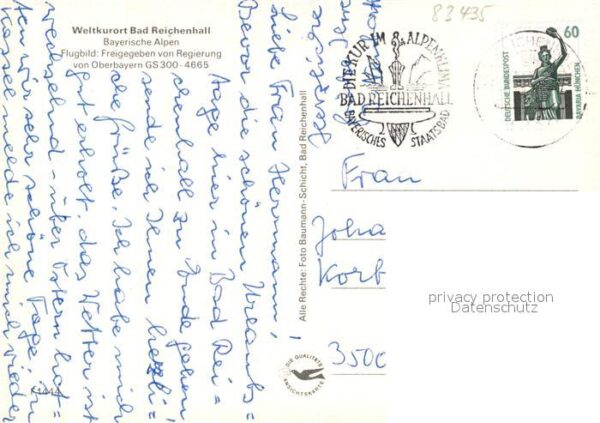 83435
Weltkurort Bad Reichenhall
Bayerische Alpen
Flugbild: Freigegeben von Regierung
von Oberbayern GS 300-4665
Liebe Frau Herrmann!
Bevor die schönen Urlaubs=
tage hier in Bad Rei=
chenhall zu Ende gehen
sende ich Ihnen herzli=
che Grüße. Ich habe mich
gut erholt, das Wetter ist
wechselnd - über Ostern hat=
ten wir sehr schöne Tage, in
Kassel melde ich mich wieder
Herzlichst
Ihre
Alle Rechte: Foto Baumann-Schicht, Bad Reichenhall
DIE KUR IM ALPENKLIMA
BAD REICHENHALL
BAYERISCHES STAATSBAD
60
DEUTSCHE BUNDESPOST
BAVARIA MÜNCHEN
Frau
Joha
Korb
3500
privacy protection
Datenschutz
DIE QUALITÄTS
ANSICHTSKARTE